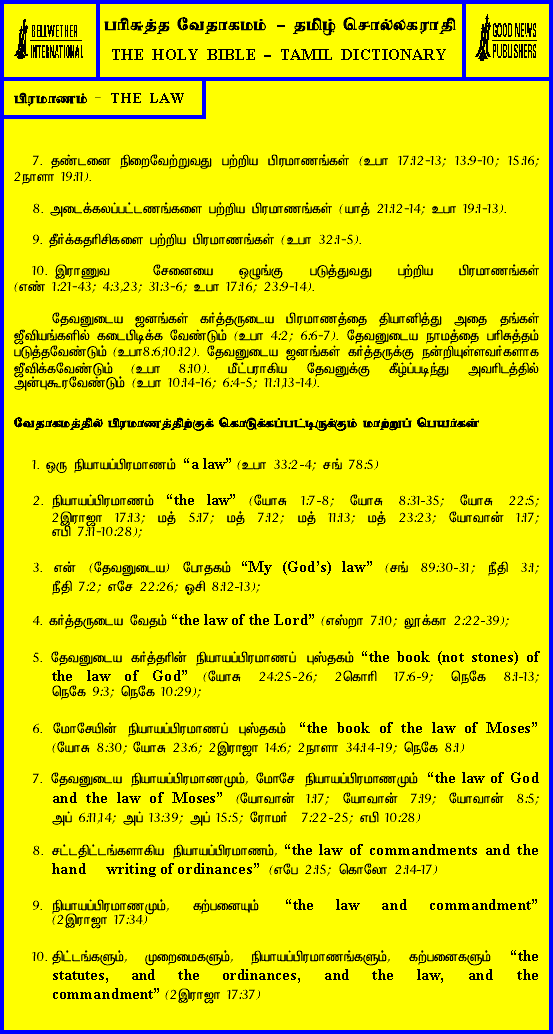 BELLWETHER
INTERNATIONAL
பரிசுத்த வேதாகமம் – தமிழ் சொல்லகராதி
THE HOLY BIBLE – TAMIL DICTIONARY
GOOD NEWS
PUBLISHERS
பிரமாணம் – THE LAW
7. தண்டனை நிறைவேற்றுவது பற்றிய பிரமாணங்கள் (உபா 17:12-13; 13:9-10; 15:16;
2நாளா 19:11).
8. அடைக்கலப்பட்டணங்களை பற்றிய பிரமாணங்கள் (யாத் 21:12-14; உபா 19:1-13).
9. தீர்க்கதரிசிகளை பற்றிய பிரமாணங்கள் (உபா 32:1-5).
10. இராணுவ சேனையை ஒழுங்கு படுத்துவது பற்றிய பிரமாணங்கள்
(எண் 1:21-43; 4:3,23; 31:3-6; உபா 17:16; 23:9-14).
தேவனுடைய ஜனங்கள் கர்த்தருடைய பிரமாணத்தை தியானித்து அதை தங்கள்
ஜீவியங்களில் கடைபிடிக்க வேண்டும் (உபா 4:2; 6:6-7). தேவனுடைய நாமத்தை பரிசுத்தம்
படுத்தவேண்டும் (உபா8:6;10:12). தேவனுடைய ஜனங்கள் கர்த்தருக்கு நன்றியுள்ளவர்களாக
ஜீவிக்கவேண்டும் (உபா 8:10). மீட்பராகிய தேவனுக்கு கீழ்ப்படிந்து அவரிடத்தில்
அன்புகூரவேண்டும் (உபா 10:14-16; 6:4-5; 11:1,13-14).
வேதாகமத்தில் பிரமாணத்திற்குக் கொடுக்கப்பட்டிருக்கும் மாற்றுப் பெயர்கள்
1. ஒரு நியாயப்பிரமாணம் “a law” (உபா 33:2-4; சங் 78:5)
2. நியாயப்பிரமாணம் “the law” (யோசு 1:7-8; யோசு 8:31-35; யோசு 22:5;
2இராஜா 17:13; மத் 5:17; மத் 7:12; மத் 11:13; மத் 23:23; யோவான் 1:17;
எபி 7:11-10:28);
3. என் (தேவனுடைய) போதகம் “My (God’s) law” (சங் 89:30-31; நீதி 3:1;
நீதி 7:2; எசே 22:26; ஓசி 8:12-13);
4. கர்த்தருடைய வேதம் “the law of the Lord” (எஸ்றா 7:10; லூக்கா 2:22-39);
5. தேவனுடைய கர்த்தரின் நியாயப்பிரமாணப் புஸ்தகம் “the book (not stones) of
the law of God” (யோசு 24:25-26; 2கொரி 17:6-9; நெகே 8:1-13;
நெகே 9:3; நெகே 10:29);
6. மோசேயின் நியாயப்பிரமாணப் புஸ்தகம் “the book of the law of Moses”
(யோசு 8:30; யோசு 23:6; 2இராஜா 14:6; 2நாளா 34:14-19; நெகே 8:1)
7. தேவனுடைய நியாயப்பிரமாணமும், மோசே நியாயப்பிரமாணமும் “the law of God
and the law of Moses” (யோவான் 1:17; யோவான் 7:19; யோவான் 8:5;
அப் 6:11,14; அப் 13:39; அப் 15:5; ரோமர் 7:22-25; எபி 10:28)
8. சட்டதிட்டங்களாகிய நியாயப்பிரமாணம், “the law of commandments and the
hand writing of ordinances” (எபே 2:15; கொலோ 2:14-17)
9. நியாயப்பிரமாணமும், கற்பனையும் “the law and commandment”
(2இராஜா 17:34)
10. திட்டங்களும், முறைமைகளும், நியாயப்பிரமாணங்களும், கற்பனைகளும் “the
statutes, and the ordinances, and the law, and the
commandment” (2இராஜா 17:37)